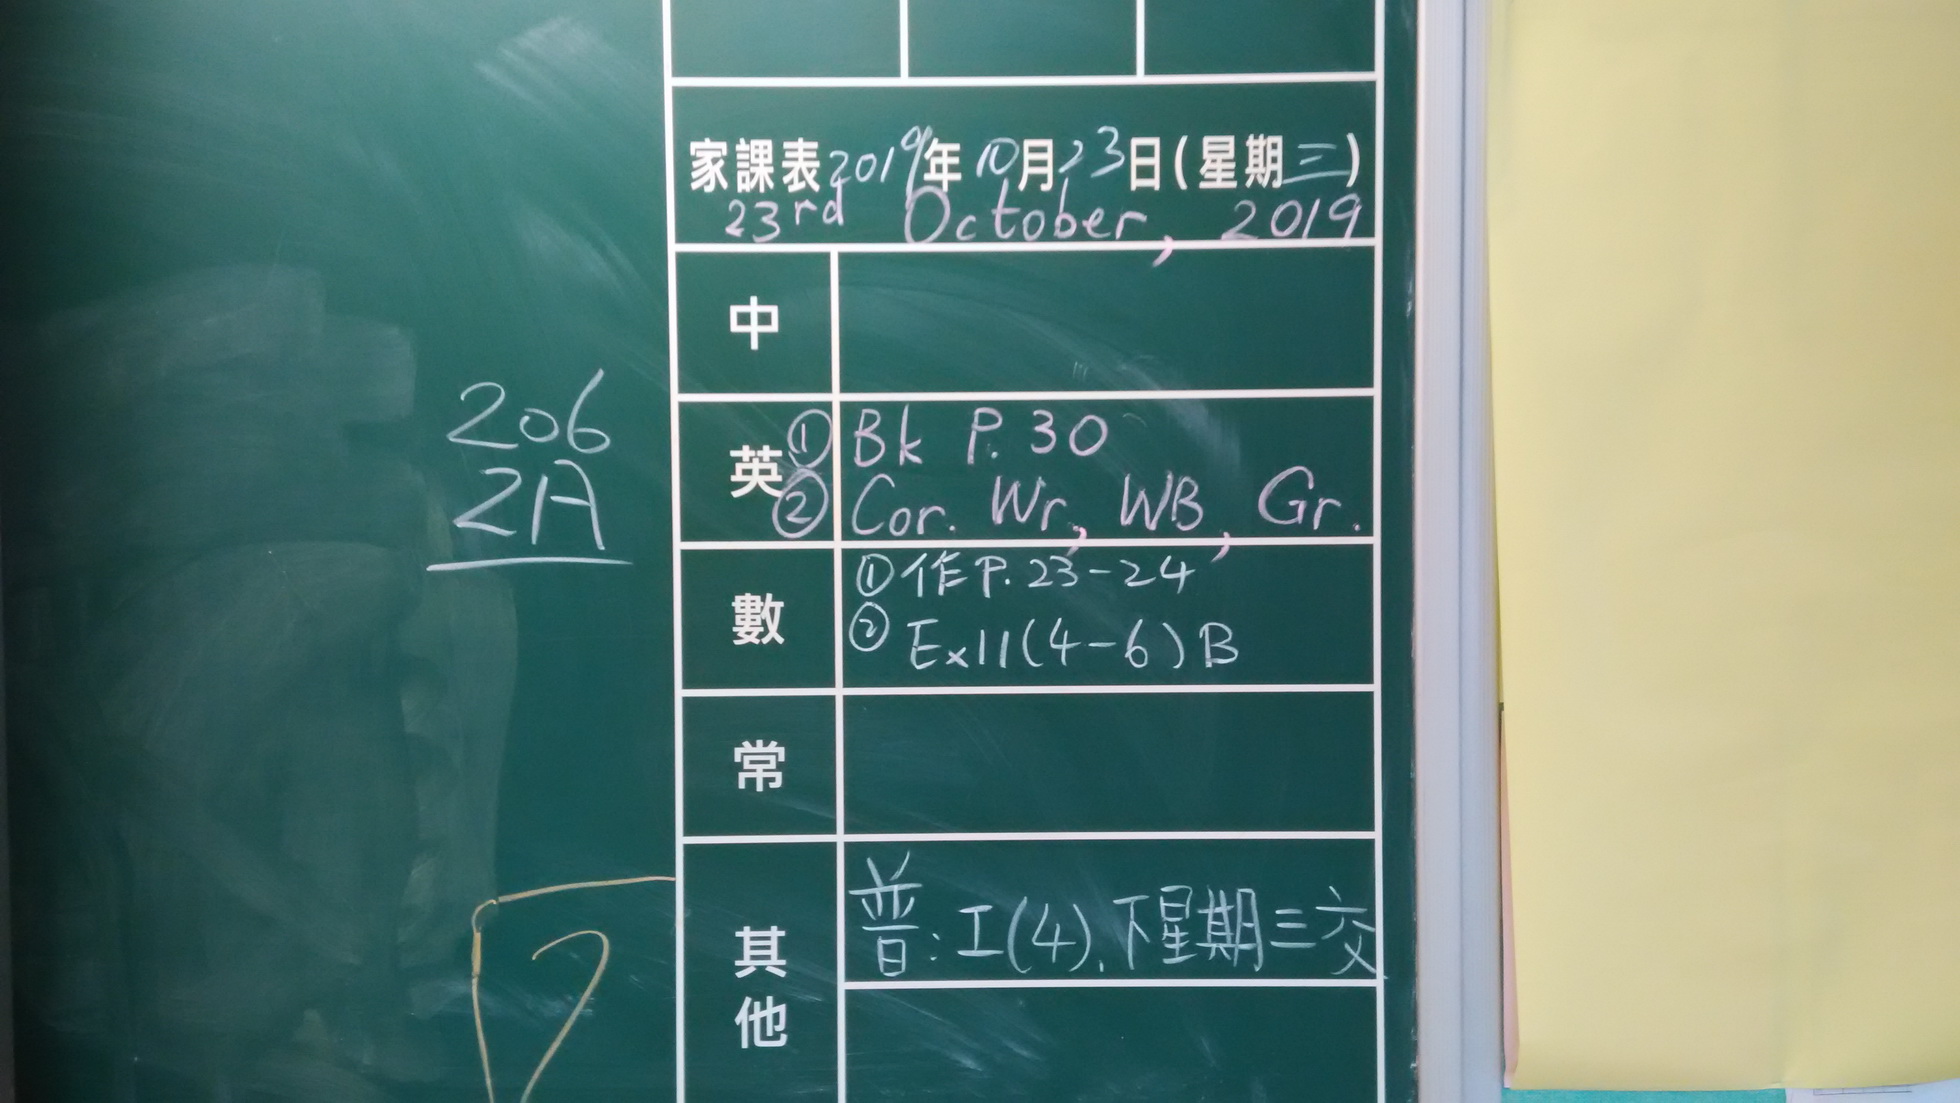 家課表2019年10月23日(星期三)
23rd October, 2019
中
英
① Bk P. 30
② Cor. Wr, WB, Gr.
206
2A
數
① 作 P. 23-24
② Ex11(4-6)B
常
其他
普: 工(4), 下星期三交